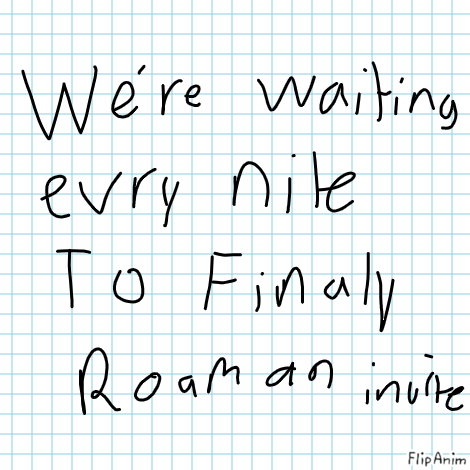 We're waiting
evry nite
To Finaly
Roam an invite
FlipAnim